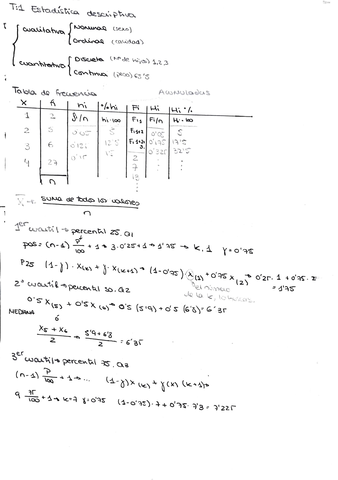 T:1 Estadística descriptiva
cualitativa Nominal (sexo)
Ordinal (calidad)
cuantitativa Discreta (nº de hijos) 1,2,3
Continua (peso) 65'5
Tabla de frecuencia Acumulados
X hi %hi Fi Hi Hi %
1 2 hi·100 Fi/n Hi·100
2 5 0'05 5 0'05 5
3 6 12'5 17'5
4 27 0'15 15 2
n 7
SUMA de todos los valores
n
1er cuartil → percentil 25. Q1
pos = (n-1) P/100 + 1 → 3·0'25+1 → 1'75 → k.1 y=0'75
P25 (1-y)·X(k) + y·X(k+1) → (1-0'75) X(1) + 0'75 X(2) → 0'25·1 + 0'75·2
= 1'75
2º cuartil → percentil 50. Q2
0'5 X(5) + 0'5 X(6) → 0'5 (5'9) + 0'5 (6'8) = 6'35
MEDIANA
X5 + X6 / 2 = 5'9+6'8 / 2 = 6'35
3er cuartil → percentil 75. Q3
(n-1) P/100 + 1 → ... (1-y) X(k) + y(X) (k+1) →
9 75/100 + 1 → k=7 y=0'75 (1-0'75)·7 + 0'75·7'3 = 7'225